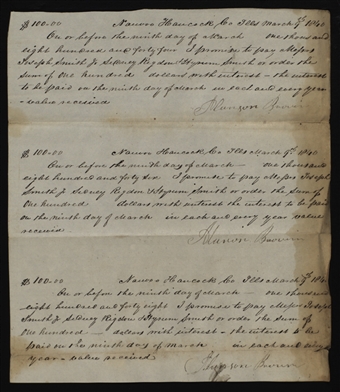 $100-00 Nauvoo Hancock Co Ills March 9th 1840
On or before the ninth day of March one thousand
eight hundred and forty four I promise to pay Messrs
Joseph Smith Jr Sidney Rigdon & Hyrum Smith or order the
Sum of One hundred dollars with interest - the interest
to be paid on the ninth day of March in each and every year
- value received
Brown
$100-00 Nauvoo Hancock Co Ills March 9th 1840
On or before the ninth day of March - one thousand
eight hundred and forty six I promise to pay Messrs Joseph
Smith Jr Sidney Rigdon & Hyrum Smith or order the Sum of
One hundred dollars with interest the interest to be paid
on the ninth day of March in each and every year value
received
Brown
$100-00 Nauvoo Hancock Co Ills March 9th 1840
On or before the ninth day of March - one thousand
eight hundred and forty eight I promise to pay Messrs Joseph
Smith Jr Sidney Rigdon & Hyrum Smith or order the sum of
One hundred dollars with interest - the interest to be
paid on the ninth day of March in each and every
year - value received
Brown